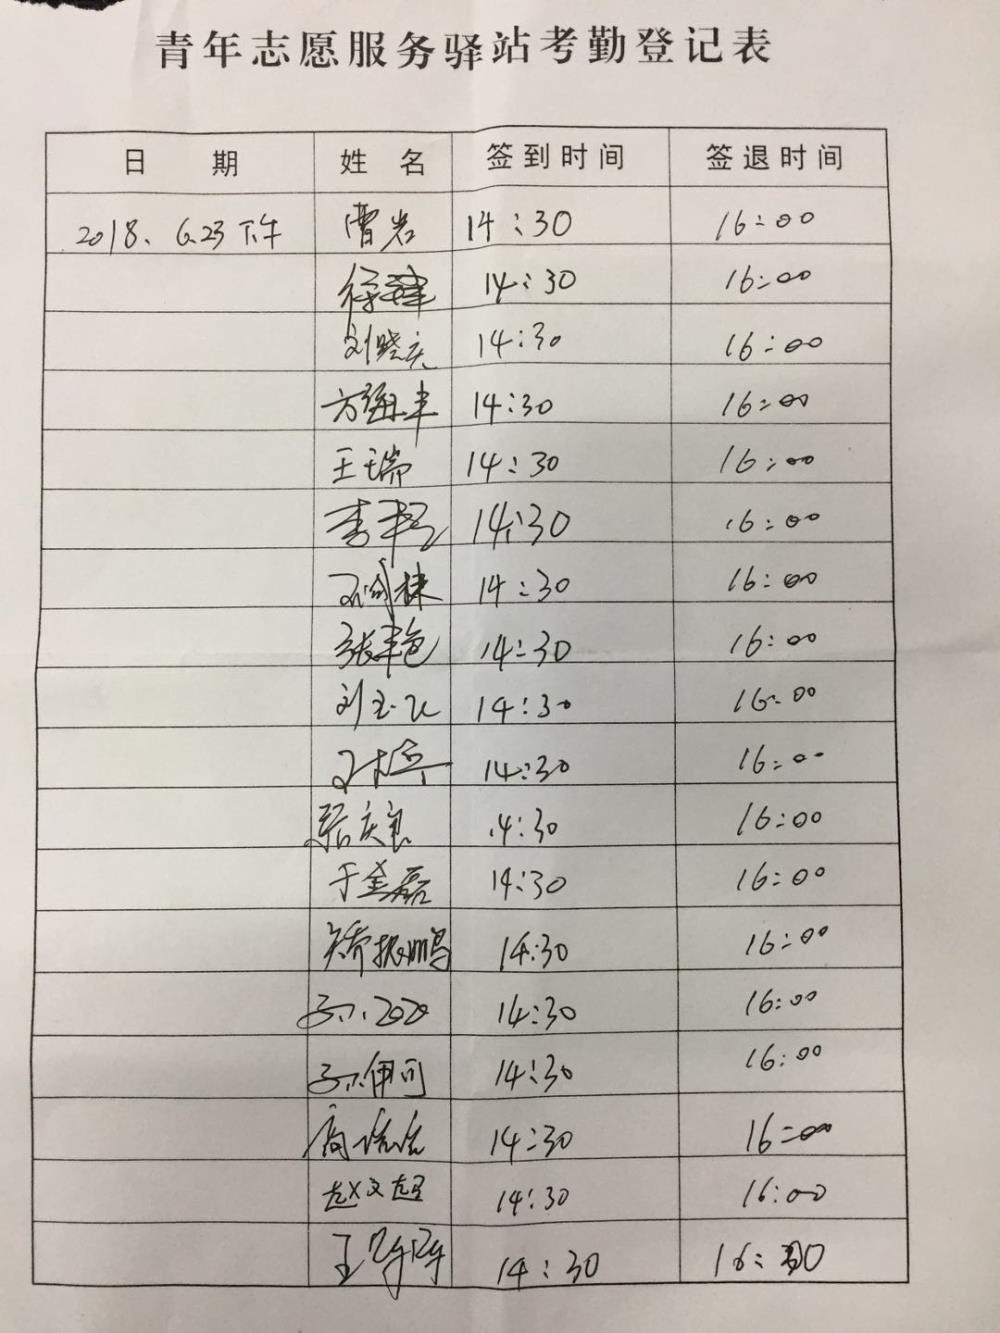 青年志愿服务驿站考勤登记表
日 期 姓 名 签到时间 签退时间
2018.6.23下午 曹岩 14:30 16:00
徐 14:30 16:00
刘晓庆 14:30 16:00
方 丰 14:30 16:00
王瑞 14:30 16:00
李 14:30 16:00
14:30 16:00
张丰艳 14:30 16:00
刘玉飞 14:30 16:00
14:30 16:00
张庆良 14:30 16:00
于金磊 14:30 16:00
矫振鹏 14:30 16:00
孙 14:30 16:00
孙伊可 14:30 16:00
高洁洁 14:30 16:00
赵文超 14:30 16:00
王 14:30 16:30